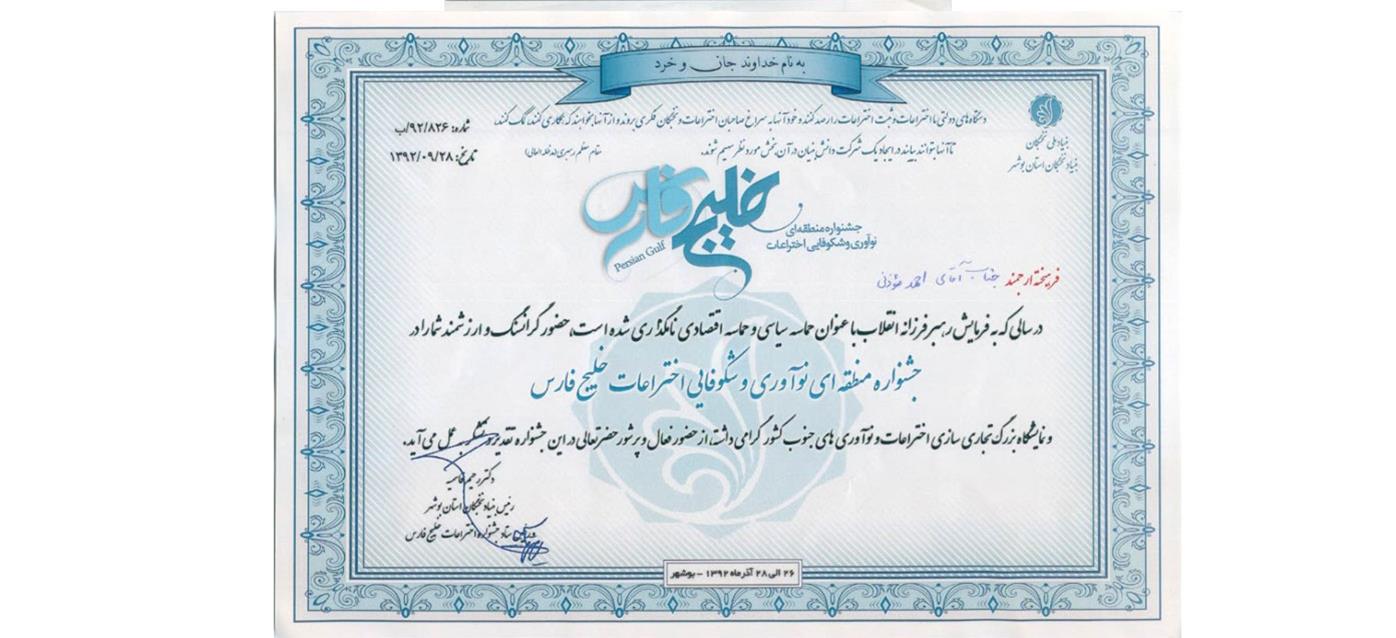 به نام خداوند جان و خرد
دستگاه‌های دولتی با اختراعات و ثبت اختراعات را رصد کنند و خود آنها به سراغ صاحبان اختراعات و نخبگان فکری بروند و از آنها بخواهند که همکاری کنند، کمک کنند،
تا آنها بتوانند بیایند در ایجاد یک شرکت دانش بنیان در آن بخش مورد نظر سهیم شوند.
مقام معظم رهبری (مدظله العالی)
شماره: ۹۲/۸۲۶/ب
تاریخ: ۱۳۹۲/۰۹/۲۸
بنیاد ملی نخبگان
بنیاد نخبگان استان بوشهر
خلیج فارس
Persian Gulf
جشنواره منطقه‌ای
نوآوری و شکوفایی اختراعات
فرهیخته ارجمند جناب آقای احمد
در سالی که به فرمایش رهبر فرزانه انقلاب با عنوان حماسه سیاسی و حماسه اقتصادی نامگذاری شده است، حضور گرانسنگ و ارزشمند شما را در
جشنواره منطقه ای نوآوری و شکوفایی اختراعات خلیج فارس
و نمایشگاه بزرگ تجاری سازی اختراعات و نوآوری های جنوب کشور گرامی داشته، از حضور فعال و پرشور حضرتعالی در این جشنواره تقدیر و تشکر بعمل می آید.
دکتر رحیم
رئیس بنیاد نخبگان استان بوشهر
و رئیس ستاد جشنواره اختراعات خلیج فارس
۲۶ الی ۲۸ آذر ماه ۱۳۹۲ - بوشهر